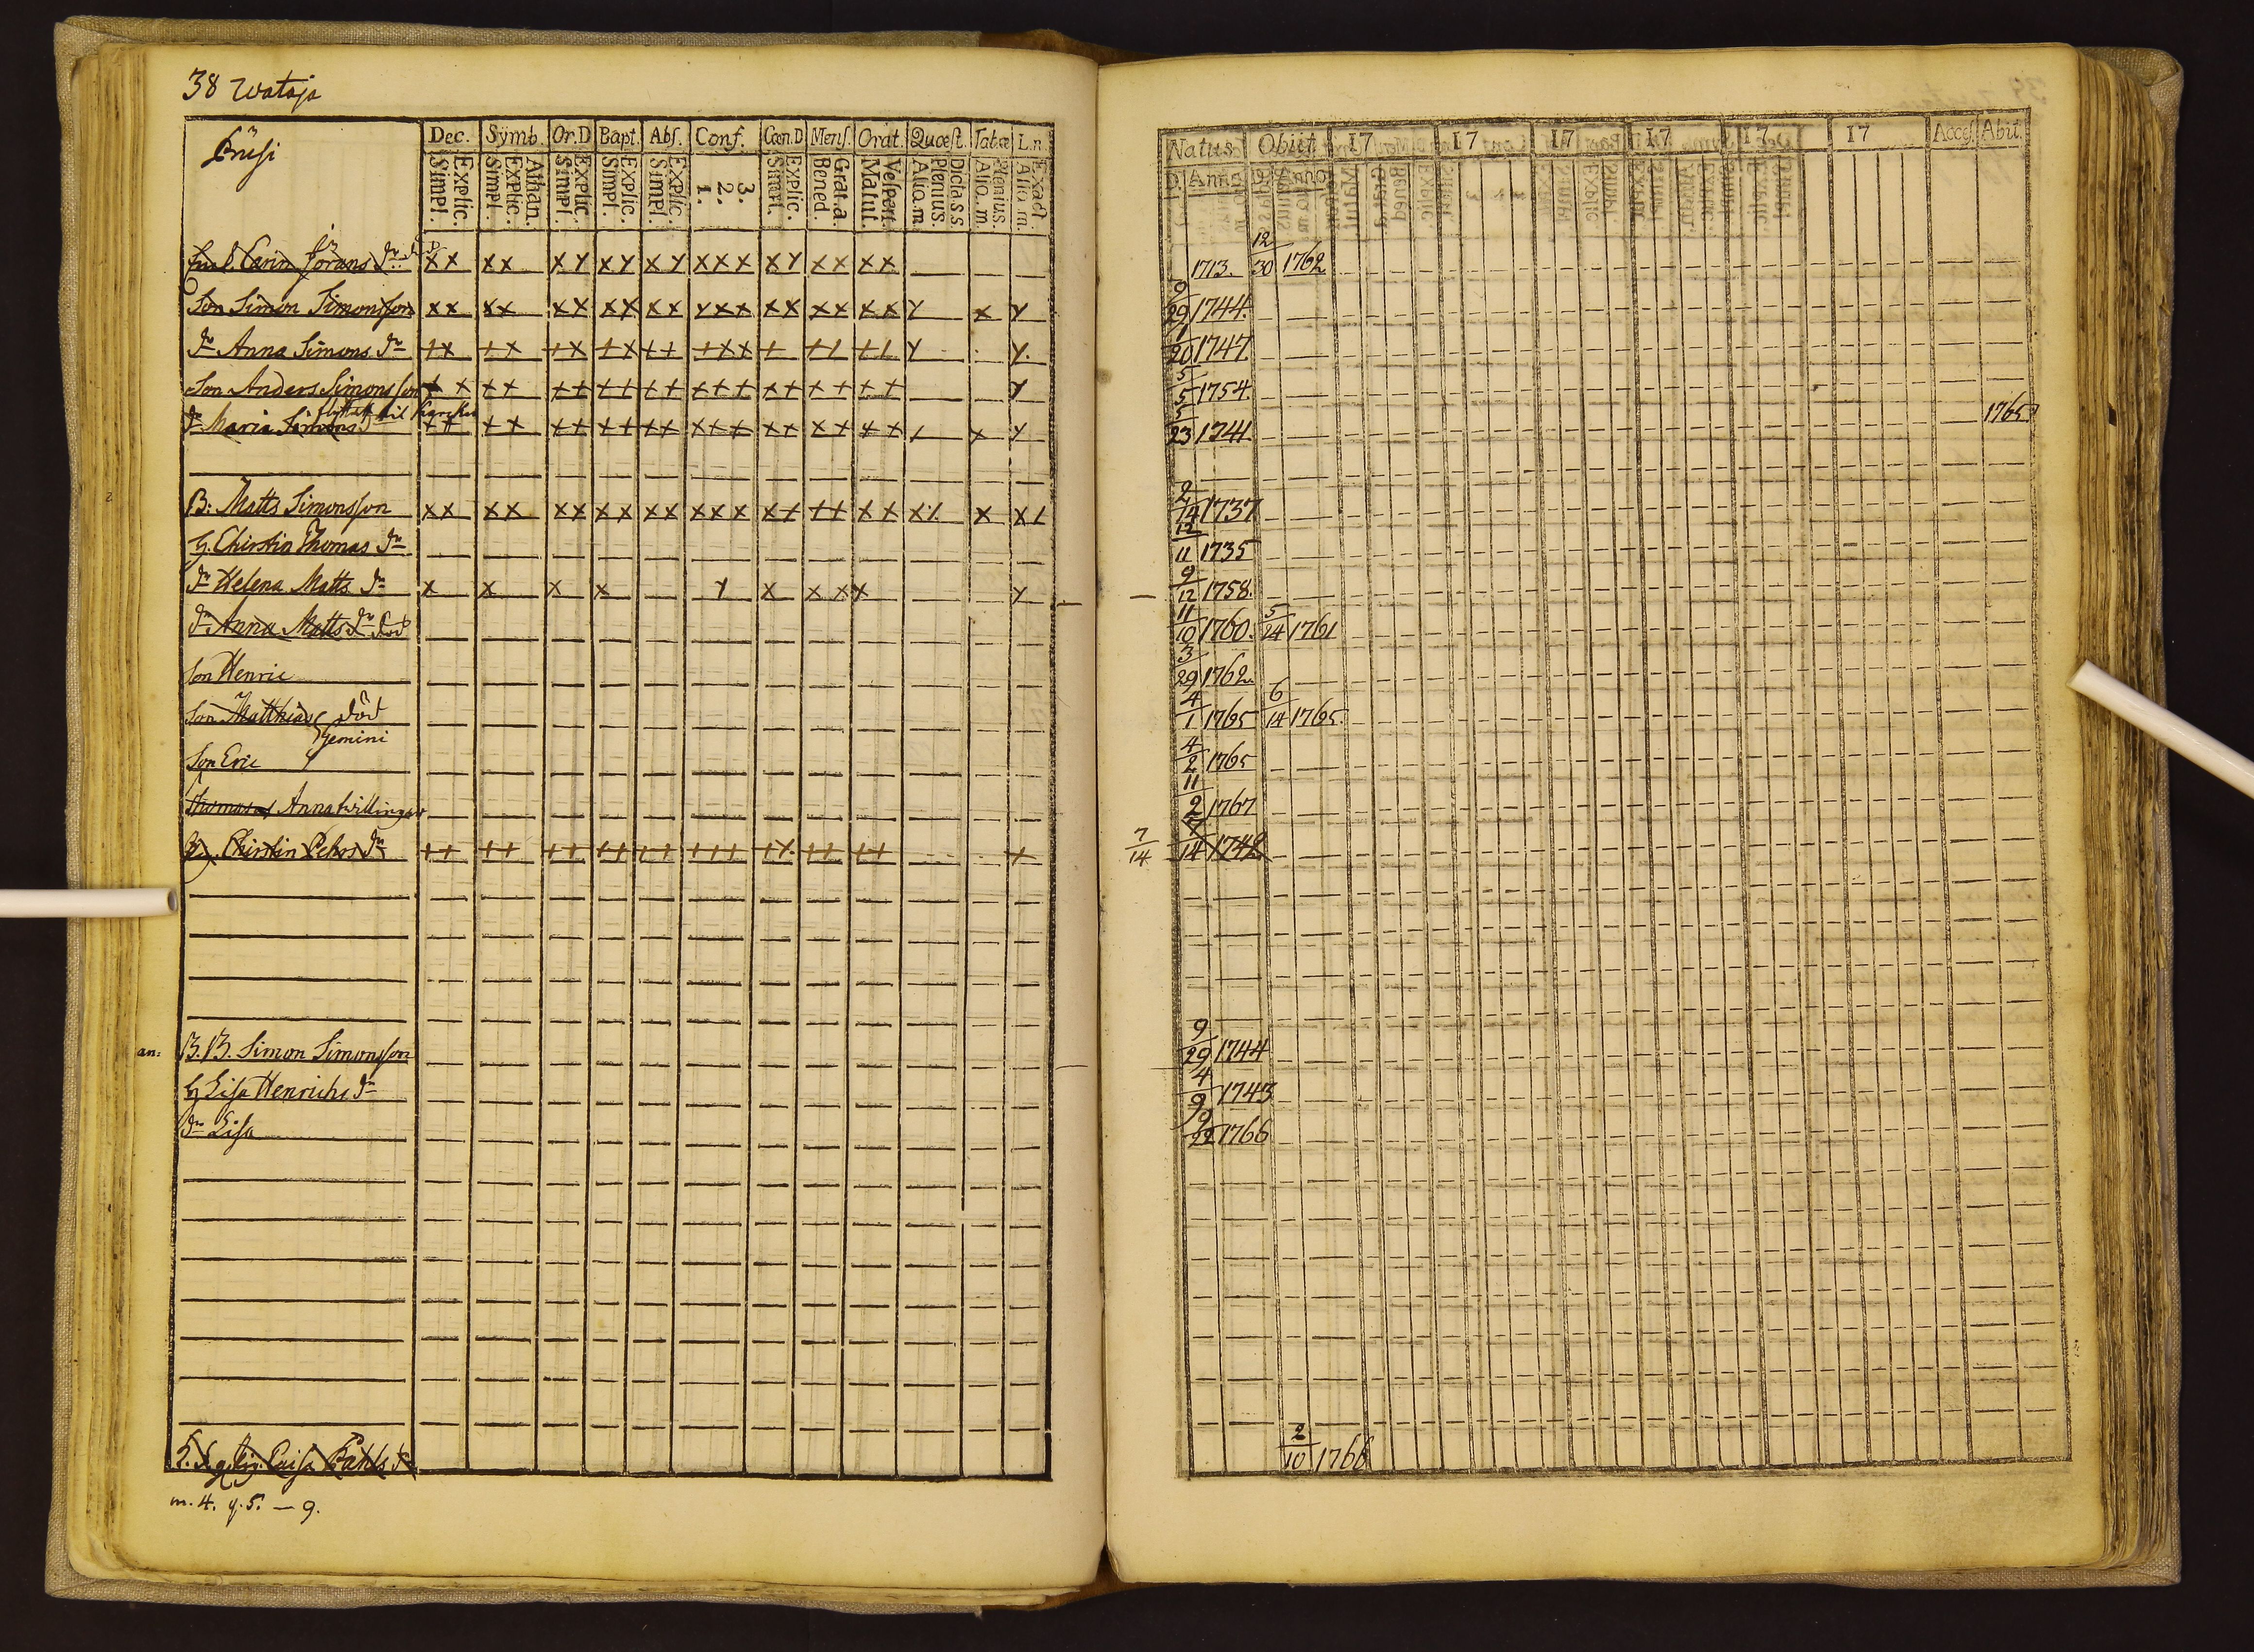 38 Wataja
Dec. Symb. Or.D Bapt. Abs. Conf. Cœn.D Mens. Orat. Quœst. Tabœ L.n.
Explic. Simpl. Athan. Explic. Simpl. Explic. Simpl. Explic. Simpl. Explic. Simpl. 3. 2. 1. Explic. Simpl. Grat.a. Bened. Vespert. Matut. Dicta.s.s Plenius. Alio.m. Plenius. Alio.m. Exact. Alio m.
Carin Jörans dr
x x x x x y x y x y x x x x y x x x x
Son Simon Simonsson
x x x x x x x x x x y x x x x x x x x y x y
dr Anna Simons dr
+ x + x + x + x + + + x x + + + + + y y.
Son Anders Simonsson
+ x + + + + + + + + + + + + + + + + + y
flyttat til
dr Maria Simons
+ + + + + + + + + + x + + x + x + + + x y
B: Matts Simonsson
x x x x x x x x x x x x x x + + + x x x x x
H. Chirstin Thomas dr
dr Helena Matts dr
x x x x y x x x x y
dr Anna Matts dr död
Son Henric
Son Matthias död
gemini
Son Eric
Thomas Anna tvillingar
Chirstin Pehrs dr
+ + + + + + + + + + + + + + x + + + + +
an: B. B. Simon Simonsson
H Lisa Henrichs dr
dr Lisa
m. 4. q. 5. — 9.
Natus Obiit 17 17 17 17 17 17 Acces. Abit.
D. Anno D. Anno
1713. 12/30 1762
9/29 1744.
1/20 1747.
5/5 1754.
5/23 1741 1765
2/14 1737
12/11 1735
9/12 1758.
11/10 1760. 5/24 1761
3/29 1762
4/1 1765 6/14 1765.
4/2 1765
11/2 1767
7/14 7/14 1742
9/29 1744
4/9 1743
9/22 1766
2/10 1766